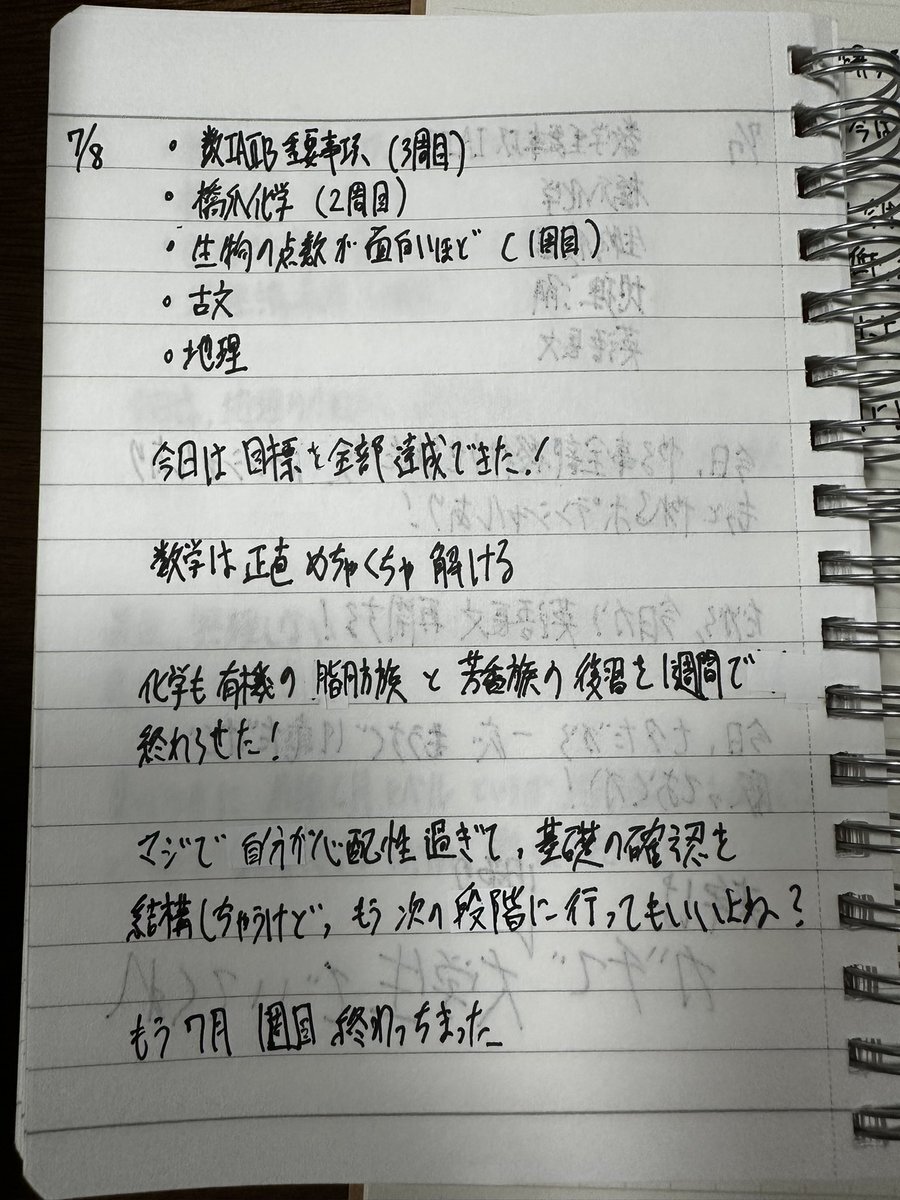 7/8
・数ⅠAⅡB重要事項 (3周目)
・橋爪化学 (2周目)
・生物の点数が面白いほど (1周目)
・古文
・地理
今日は目標を全部達成できた!
数学は正直めちゃくちゃ解ける
化学も有機の脂肪族と芳香族の復習を1週間で
終わらせた!
マジで自分が心配性過ぎて、基礎の確認を
結構しちゃうけど、もう次の段階に行ってもいいよね?
もう7月1週目終わっちまった